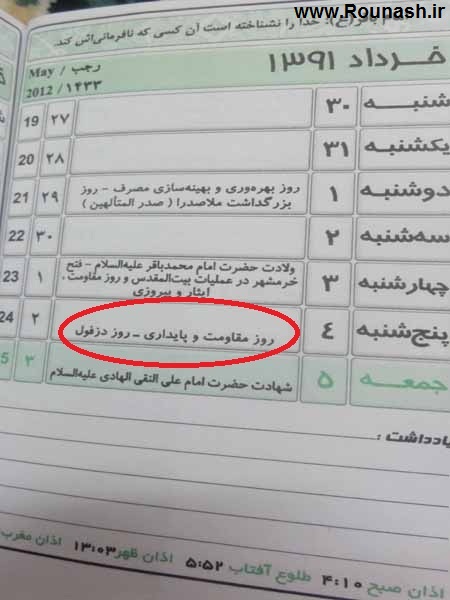 www.Rounash.ir
خدا را نشناخته است آن کسی که نافرمانی‌اش کند.
خرداد ۱۳۹۱
رجب / May
۱۴۳۳ / 2012
شنبه ۳۰ ۲۷ 19
یکشنبه ۳۱ ۲۸ 20
دوشنبه ۱ روز بهره‌وری و بهینه‌سازی مصرف - روز ۲۹ 21
بزرگداشت ملاصدرا (صدر المتألهین)
سه‌شنبه ۲ ۳۰ 22
چهارشنبه ۳ ولادت حضرت امام محمدباقر علیه‌السلام - فتح ۱ 23
خرمشهر در عملیات بیت‌المقدس و روز مقاومت،
ایثار و پیروزی
پنج‌شنبه ۴ روز مقاومت و پایداری - روز دزفول ۲ 24
جمعه ۵ شهادت حضرت امام علی النقی الهادی علیه‌السلام ۳
یادداشت:
اذان صبح ۴:۱۰ طلوع آفتاب ۵:۵۲ اذان ظهر ۱۳:۰۳ اذان مغرب